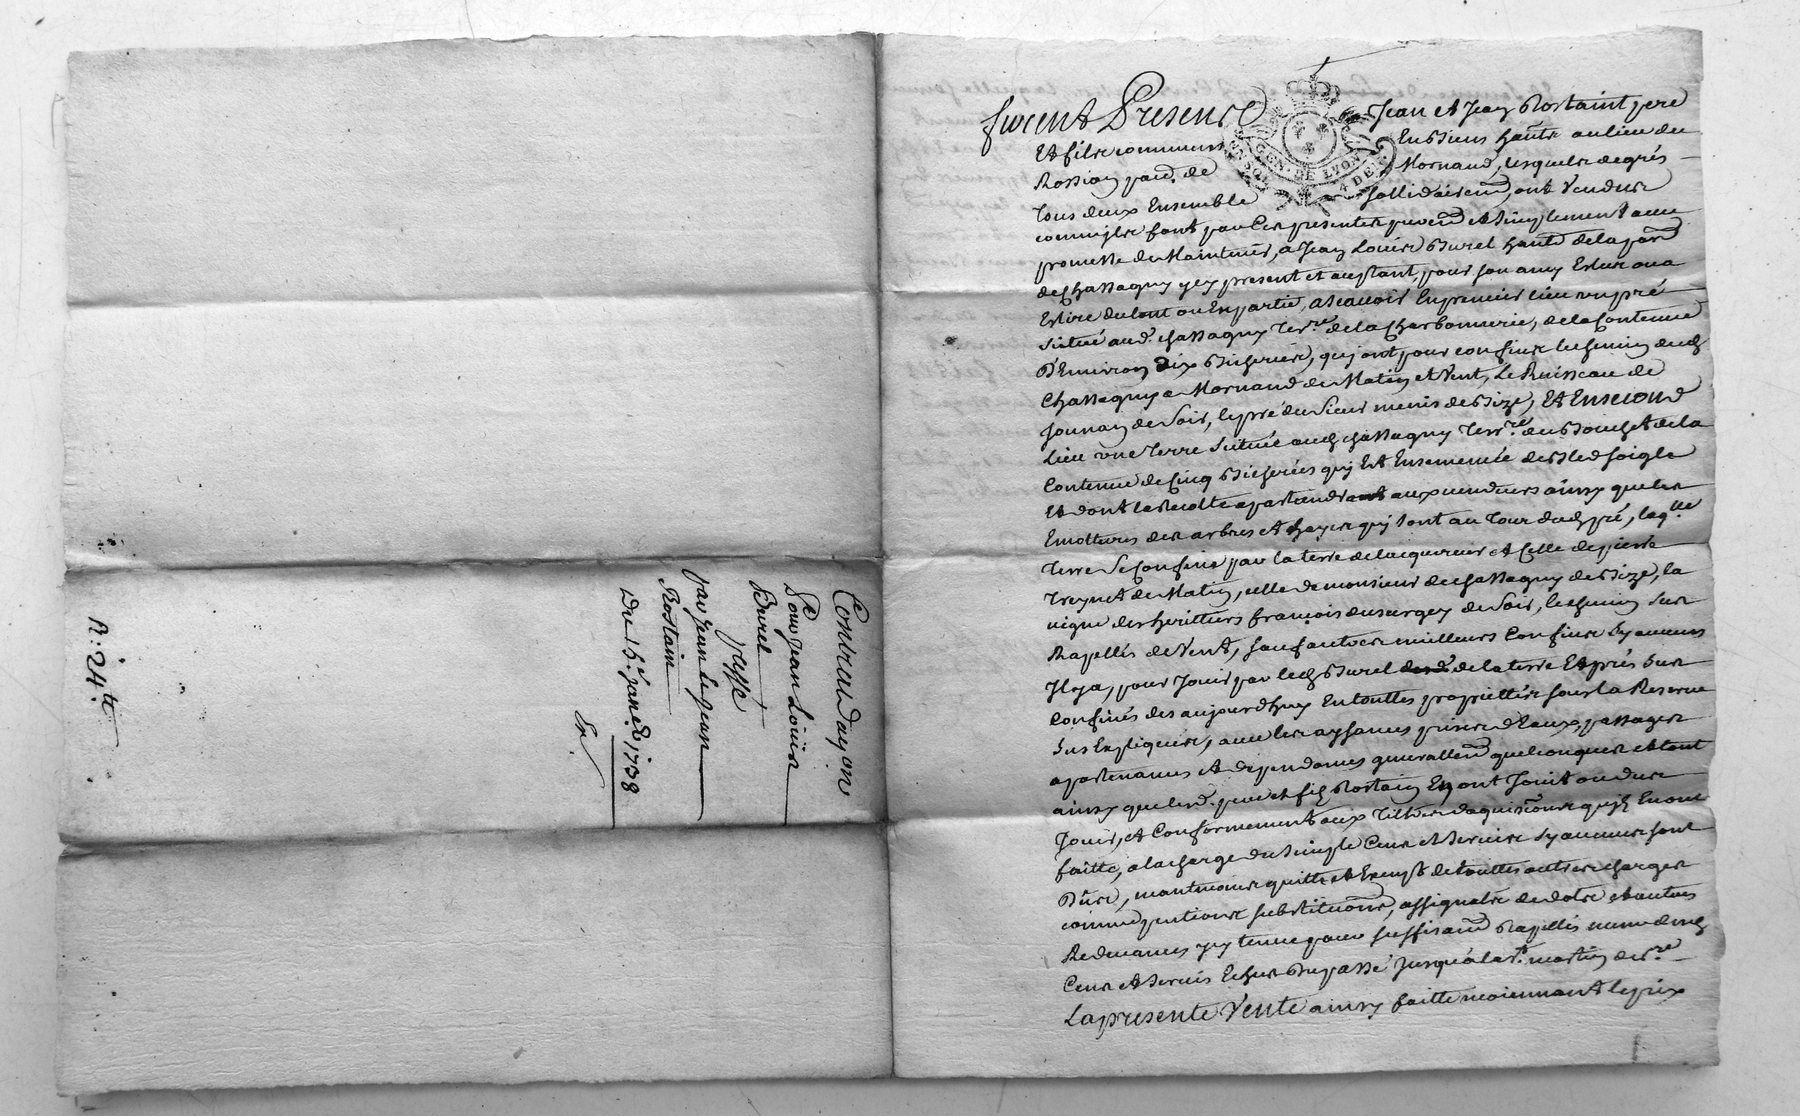 Contrat daq.on
Pour Jean Louis
Burel
passé
par Jean et Jean
Rostain
Du 15.e janv. 1738
R: 24.tt
furent Presents Jean et Jean Rostaint pere
Et fils communs En Biens habits au lieu de
Rossion parr. de Mornand, lesquels de grés
tous deux Ensemble sollidairemt, ont vendus
comme ils font par Ces presentes puremt et Simplement avec
promesse de Maintenir, a Jean Louis Burel habitt de la parr
de Chassagny y present et aceptant, pour son amy Esleu ou a
Eslire du tout ou En partie, ascavoir En premier lieu un pré
situé aud. chassagny Terr.re de la Charbonnerie, de la Contenue
D'Environ dix Bicherées, qui ont pour confins le chemin dud
Chassagny a Mornand de Matin et Vent, Le Ruisseau de
Jonnan de Soir, le pré du Sieur de Bize, Et En second
Lieu une Terre Situé aud chassagny Terr.re du Bouchet de la
Contenue de Cinq Bicherées qui Est Ensemencée de Bled soigle
Et dont la Recolte apartiendra aux vendeurs ainsy que les
Emottures des arbres et hayes qui sont au Tour dud pré, laq.lle
Terre Se Confine par la terre de lacquereur et Celle de pierre
de Matin, celle de monsieur de Chassagny de Bize, la
vigne des heritiers françois de Soir, le chemin Sus
Rapellés de Vent, sauf autres meilleurs Confins Sy aucuns
Il y a, pour Jouir par led Burel de la terre Et prés Sus
Confinés des aujourdhuy En touttes proprietés sous la Reserve
Sus Expliquée, avec les aysances prises d'Eaux, passages
apartenances et dependances generallemt quelconques et tout
ainsy que lesd. pere et fils Rostain En ont Jouit ou dus
Jouir, et Conformement aux Tiltres daquisitions qu'ils En ont
faitte, a la charge du Simple Cens et Servis Sy aucuns sont
Dus, neantmoins quitte et Exempt de touttes autres charges
comme pentions substitutions, assignats de dots et autres
Redevances y tenue pour suffisamt Rapellés meme desd
Cens et Servis Echus Du passé Jusqu'à la St. martin der.re
La presente Vente ainsy faitte moiennant le prix